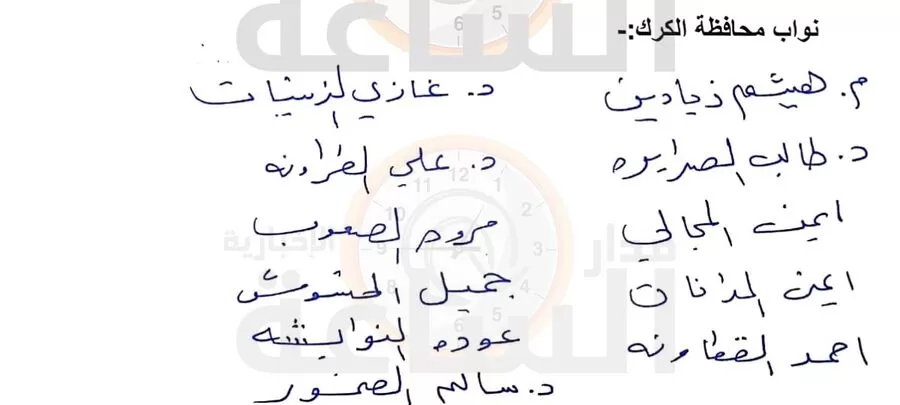 نواب محافظة الكرك:-
م. هيثم زيادين
د. غازي الذنيبات
د. طالب الصرايره
د. علي الطراونه
ايمن المجالي
مروه الصعوب
ايمن المدانات
جميل الحشوش
احمد القطاونه
عوده النوايشه
د. سالم الضمور
مدار
الساعة
الإخبارية